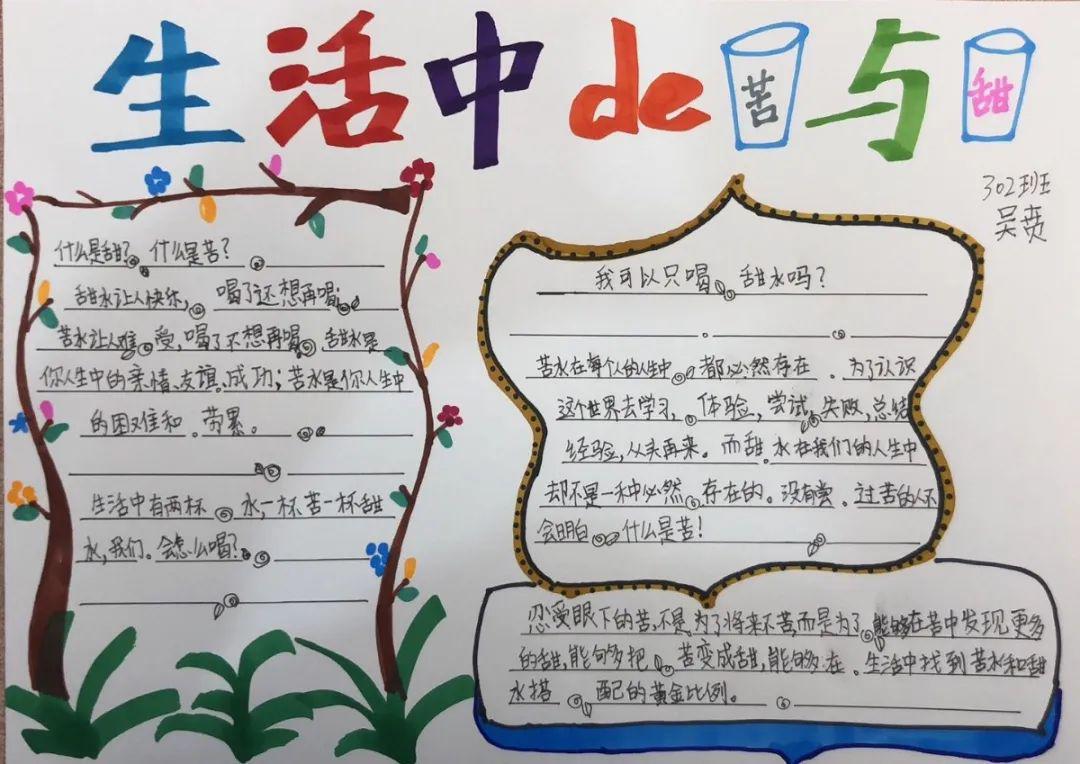 生活中de苦与甜
302班
吴贲
什么是甜？什么是苦？
甜水让人快乐，喝了还想再喝；
苦水让人难受，喝了不想再喝。甜水是
你人生中的亲情、友谊、成功；苦水是你人生中
的困难和劳累。
生活中有两杯水，一杯苦一杯甜
水，我们。会怎么喝？
我可以只喝甜水吗？
苦水在每个人的人生中都必然存在．为了认识
这个世界去学习，体验，尝试，失败，总结
经验，从头再来。而甜水在我们的人生中
却不是一种必然存在的。没有尝．过苦的人不
会明白什么是苦！
忍受眼下的苦，不是为了将来不苦，而是为了能够在苦中发现更多
的甜，能够把苦变成甜，能够在生活中找到苦水和甜
水搭配的黄金比例。